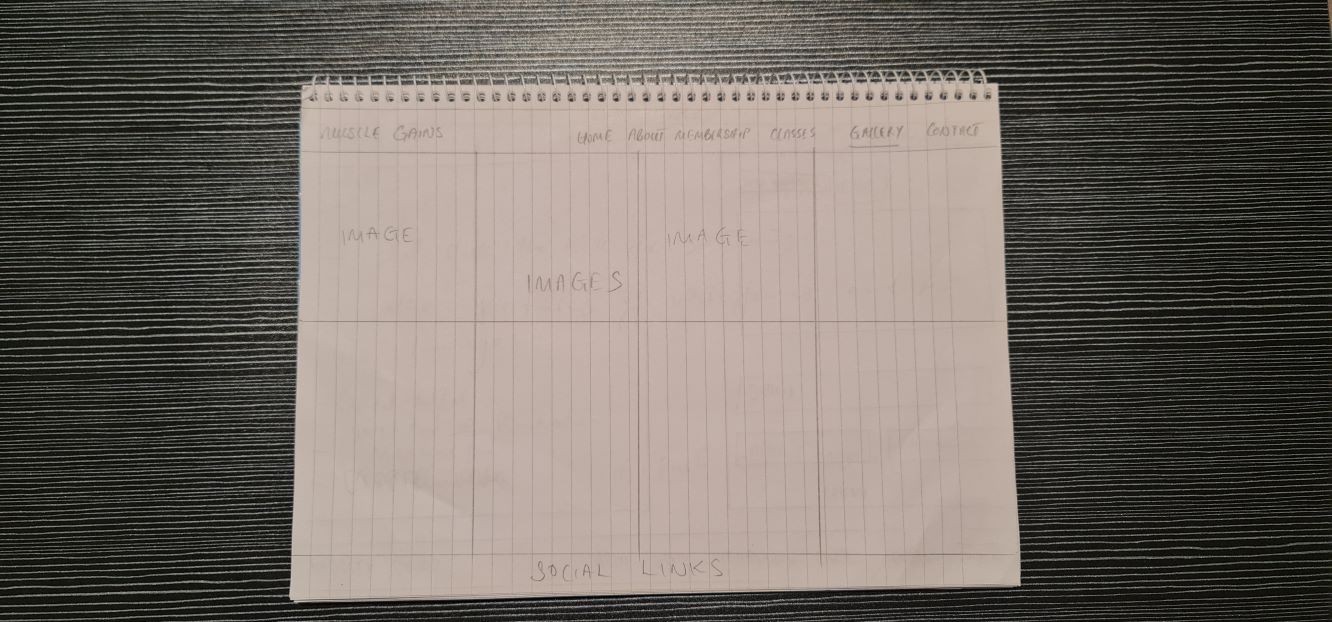 MUSCLE GAINS HOME ABOUT MEMBERSHIP CLASSES GALLERY CONTACT
IMAGE IMAGE
IMAGES
SOCIAL LINKS